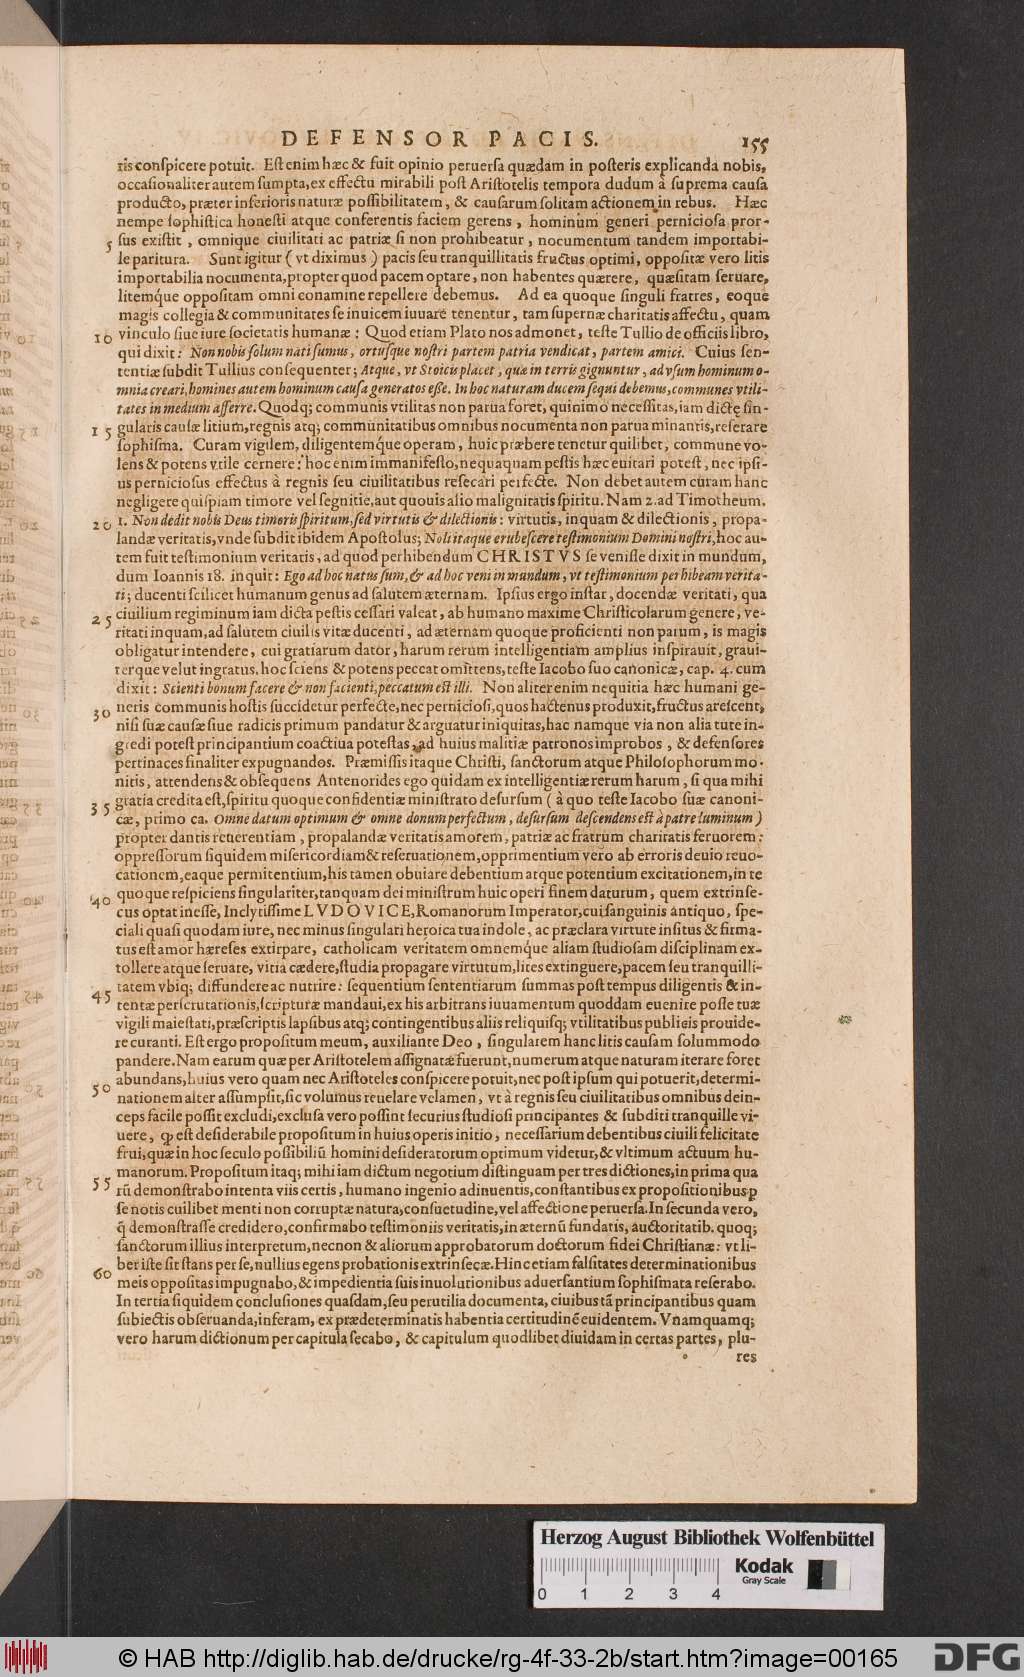 DEFENSOR PACIS. 155
ris conſpicere potuit. Eſt enim hæc & fuit opinio peruerſa quædam in poſteris explicanda nobis,
occaſionaliter autem ſumpta, ex effectu mirabili poſt Ariſtotelis tempora dudum à ſuprema cauſa
producto, præter inferioris naturæ poſſibilitatem, & cauſarum ſolitam actionem in rebus. Hæc
nempe ſophiſtica honeſti atque conferentis faciem gerens, hominum generi pernicioſa pror-
5 ſus exiſtit, omnique ciuilitati ac patriæ ſi non prohibeatur, nocumentum tandem importabi-
le paritura. Sunt igitur (vt diximus) pacis ſeu tranquillitatis fructus optimi, oppoſitæ vero litis
importabilia nocumenta, propter quod pacem optare, non habentes quærere, quæſitam ſeruare,
litemq́ue oppoſitam omni conamine repellere debemus. Ad ea quoque ſinguli fratres, eoque
magis collegia & communitates ſe inuicem iuuare tenentur, tam ſupernæ charitatis affectu, quam
10 vinculo ſiue iure ſocietatis humanæ: Quod etiam Plato nos admonet, teſte Tullio de officiis libro,
qui dixit: Non nobis ſolum nati ſumus, ortuſque noſtri partem patria vendicat, partem amici. Cuius ſen-
tentiæ ſubdit Tullius conſequenter; Atque, vt Stoicis placet, quæ in terris gignuntur, ad vſum hominum o-
mnia creari, homines autem hominum cauſa generatos eſſe. In hoc naturam ducem ſequi debemus, communes vtili-
tates in medium afferre. Quodq; communis vtilitas non parua foret, quinimo neceſſitas, iam dictę ſin-
15 gularis cauſæ litium, regnis atq; communitatibus omnibus nocumenta non parua minantis, reſerare
ſophiſma. Curam vigilem, diligentemq́ue operam, huic præbere tenetur quilibet, commune vo-
lens & potens vtile cernere: hoc enim immanifeſto, nequaquam peſtis hæc euitari poteſt, nec ipſi-
us pernicioſus effectus à regnis ſeu ciuilitatibus reſecari perfecte. Non debet autem curam hanc
negligere quiſpiam timore vel ſegnitie, aut quouis alio malignitatis ſpiritu. Nam 2. ad Timotheum,
20 1. Non dedit nobis Deus timoris ſpiritum, ſed virtutis & dilectionis: virtutis, inquam & dilectionis, propa-
landæ veritatis, vnde ſubdit ibidem Apoſtolus; Noli itaque erubeſcere teſtimonium Domini noſtri, hoc au-
tem fuit teſtimonium veritatis, ad quod perhibendum CHRISTVS ſe veniſſe dixit in mundum,
dum Ioannis 18. inquit: Ego ad hoc natus ſum, & ad hoc veni in mundum, vt teſtimonium perhibeam verita-
ti; ducenti ſcilicet humanum genus ad ſalutem æternam. Ipſius ergo inſtar, docendæ veritati, qua
25 ciuilium regiminum iam dicta peſtis ceſſari valeat, ab humano maxime Chriſticolarum genere, ve-
ritati inquam, ad ſalutem ciuilis vitæ ducenti, ad æternam quoque proficienti non parum, is magis
obligatur intendere, cui gratiarum dator, harum rerum intelligentiam amplius inſpirauit, graui-
terque velut ingratus, hoc ſciens & potens peccat omittens, teſte Iacobo ſuo canonicæ, cap. 4. cum
dixit: Scienti bonum facere & non facienti, peccatum eſt illi. Non aliter enim nequitia hæc humani ge-
30 neris communis hoſtis ſuccidetur perfecte, nec pernicioſi, quos hactenus produxit, fructus areſcent,
niſi ſuæ cauſæ ſiue radicis primum pandatur & arguatur iniquitas, hac namque via non alia tute in-
gredi poteſt principantium coactiua poteſtas, ad huius malitiæ patronos improbos, & defenſores
pertinaces finaliter expugnandos. Præmiſſis itaque Chriſti, ſanctorum atque Philoſophorum mo-
nitis, attendens & obſequens Antenorides ego quidam ex intelligentiæ rerum harum, ſi qua mihi
35 gratia credita eſt, ſpiritu quoque confidentiæ miniſtrato deſurſum (à quo teſte Iacobo ſuæ canoni-
cæ, primo ca. Omne datum optimum & omne donum perfectum, deſurſum deſcendens eſt à patre luminum)
propter dantis reuerentiam, propalandæ veritatis amorem, patriæ ac fratrum charitatis feruorem:
oppreſſorum ſiquidem miſericordiam & reſeruationem, opprimentium vero ab erroris deuio reuo-
cationem, eaque permitentium, his tamen obuiare debentium atque potentium excitationem, in te
40 quoque reſpiciens ſingulariter, tanquam dei miniſtrum huic operi finem daturum, quem extrinſe-
cus optat ineſſe, Inclytiſſime LVDOVICE, Romanorum Imperator, cui ſanguinis antiquo, ſpe-
ciali quaſi quodam iure, nec minus ſingulari heroica tua indole, ac præclara virtute inſitus & firma-
tus eſt amor hæreſes extirpare, catholicam veritatem omnemq́ue aliam ſtudioſam diſciplinam ex-
tollere atque ſeruare, vitia cædere, ſtudia propagare virtutum, lites extinguere, pacem ſeu tranquilli-
45 tatem vbiq; diffundere ac nutrire: ſequentium ſententiarum ſummas poſt tempus diligentis & in-
tentæ perſcrutationis, ſcripturæ mandaui, ex his arbitrans iuuamentum quoddam euenire poſſe tuæ
vigili maieſtati, præſcriptis lapſibus atq; contingentibus aliis reliquiſq; vtilitatibus publicis prouide-
re curanti. Eſt ergo propoſitum meum, auxiliante Deo, ſingularem hanc litis cauſam ſolummodo
pandere. Nam earum quæ per Ariſtotelem aſſignatæ fuerunt, numerum atque naturam iterare foret
50 abundans, huius vero quam nec Ariſtoteles conſpicere potuit, nec poſt ipſum qui potuerit, determi-
nationem alter aſſumpſit, ſic volumus reuelare velamen, vt à regnis ſeu ciuilitatibus omnibus dein-
ceps facile poſſit excludi, excluſa vero poſſint ſecurius ſtudioſi principantes & ſubditi tranquille vi-
uere, ꝙ eſt deſiderabile propoſitum in huius operis initio, neceſſarium debentibus ciuili felicitate
frui, quæ in hoc ſeculo poſſibiliũ homini deſideratorum optimum videtur, & vltimum actuum hu-
manorum. Propoſitum itaq; mihi iam dictum negotium diſtinguam per tres dictiones, in prima qua
55 rũ demonſtrabo intenta viis certis, humano ingenio adinuentis, conſtantibus ex propoſitionibus ꝑ
ſe notis cuilibet menti non corruptæ natura, conſuetudine, vel affectione peruerſa. In ſecunda vero,
q̃ demonſtraſſe credidero, confirmabo teſtimoniis veritatis, in æternũ fundatis, auctoritatib. quoq;
ſanctorum illius interpretum, necnon & aliorum approbatorum doctorum fidei Chriſtianæ: vt li-
ber iſte ſit ſtans per ſe, nullius egens probationis extrinſecæ. Hinc etiam falſitates determinationibus
60 meis oppoſitas impugnabo, & impedientia ſuis inuolutionibus aduerſantium ſophiſmata reſerabo.
In tertia ſiquidem concluſiones quaſdam, ſeu perutilia documenta, ciuibus tã principantibus quam
ſubiectis obſeruanda, inferam, ex prædeterminatis habentia certitudinẽ euidentem. Vnamquamq;
vero harum dictionum per capitula ſecabo, & capitulum quodlibet diuidam in certas partes, plu-
res
Herzog August Bibliothek Wolfenbüttel
Kodak
Gray Scale
0 1 2 3 4
© HAB http://diglib.hab.de/drucke/rg-4f-33-2b/start.htm?image=00165
DFG